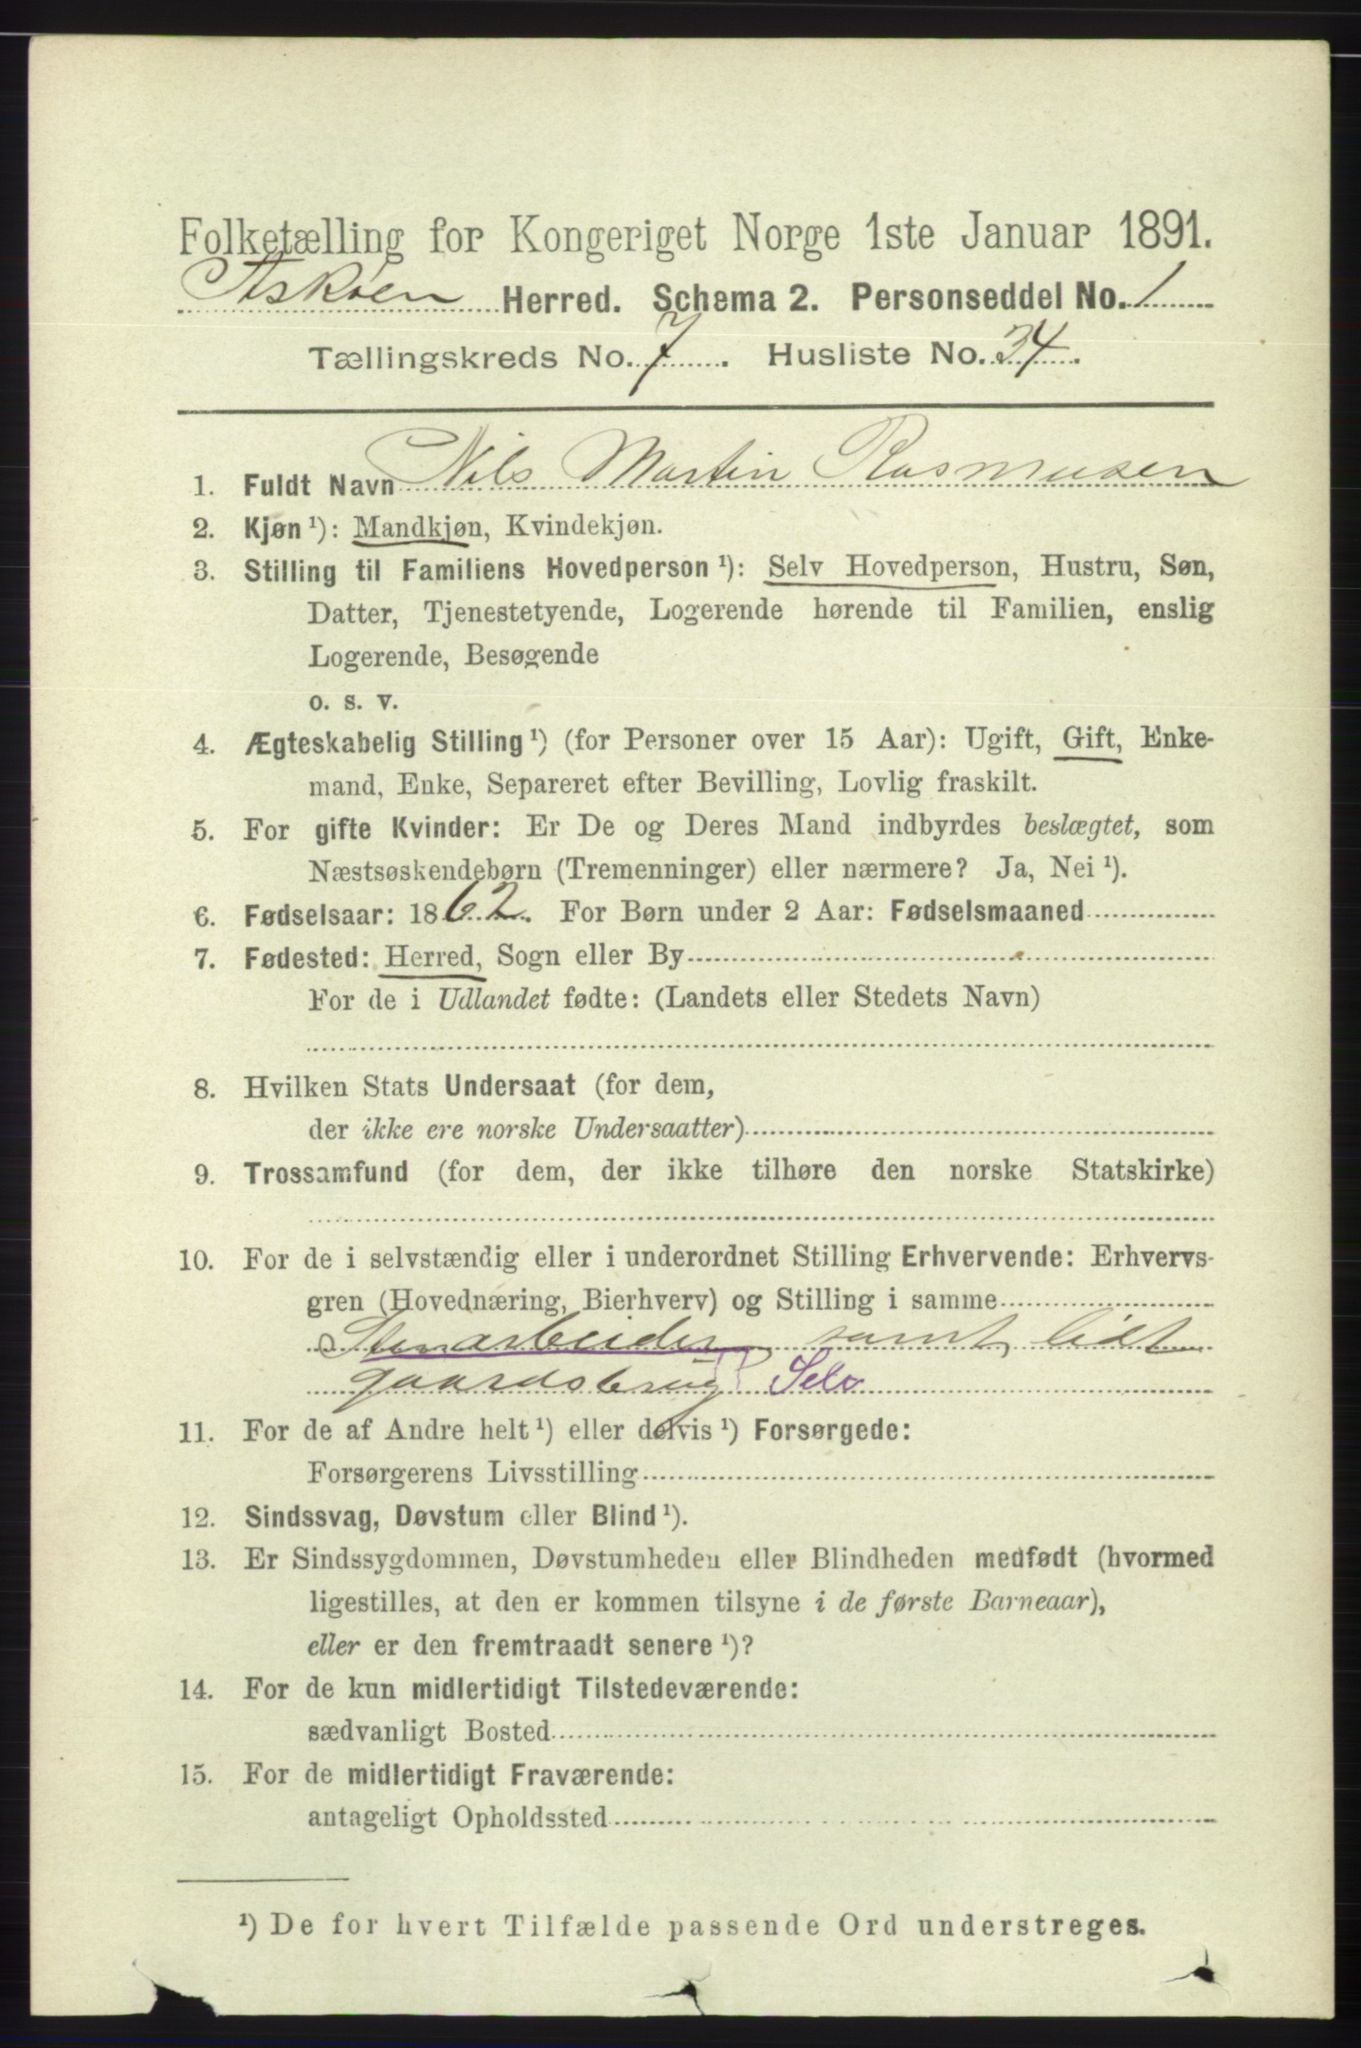 Folketælling for Kongeriget Norge 1ste Januar 1891.
Askøen Herred. Schema 2. Personseddel No. 1
Tællingskreds No. 7. Husliste No. 34.
1. Fuldt Navn Nils Martin Rasmusen
2. Kjøn ¹): Mandkjøn, Kvindekjøn.
3. Stilling til Familiens Hovedperson ¹): Selv Hovedperson, Hustru, Søn,
Datter, Tjenestetyende, Logerende hørende til Familien, enslig
Logerende, Besøgende
o. s. v.
4. Ægteskabelig Stilling ¹) (for Personer over 15 Aar): Ugift, Gift, Enke-
mand, Enke, Separeret efter Bevilling, Lovlig fraskilt.
5. For gifte Kvinder: Er De og Deres Mand indbyrdes beslægtet, som
Næstsøskendebørn (Tremenninger) eller nærmere? Ja, Nei ¹).
6. Fødselsaar: 1862. For Børn under 2 Aar: Fødselsmaaned
7. Fødested: Herred, Sogn eller By
For de i Udlandet fødte: (Landets eller Stedets Navn)
8. Hvilken Stats Undersaat (for dem,
der ikke ere norske Undersaatter)
9. Trossamfund (for dem, der ikke tilhøre den norske Statskirke)
10. For de i selvstændig eller i underordnet Stilling Erhvervende: Erhvervs-
gren (Hovednæring, Bierhverv) og Stilling i samme
Stenarbeider samt lidt
gaardsbrug Selv
11. For de af Andre helt ¹) eller delvis ¹) Forsørgede:
Forsørgerens Livsstilling
12. Sindssvag, Døvstum eller Blind ¹).
13. Er Sindssygdommen, Døvstumheden eller Blindheden medfødt (hvormed
ligestilles, at den er kommen tilsyne i de første Barneaar),
eller er den fremtraadt senere ¹)?
14. For de kun midlertidigt Tilstedeværende:
sædvanligt Bosted
15. For de midlertidigt Fraværende:
antageligt Opholdssted
¹) De for hvert Tilfælde passende Ord understreges.